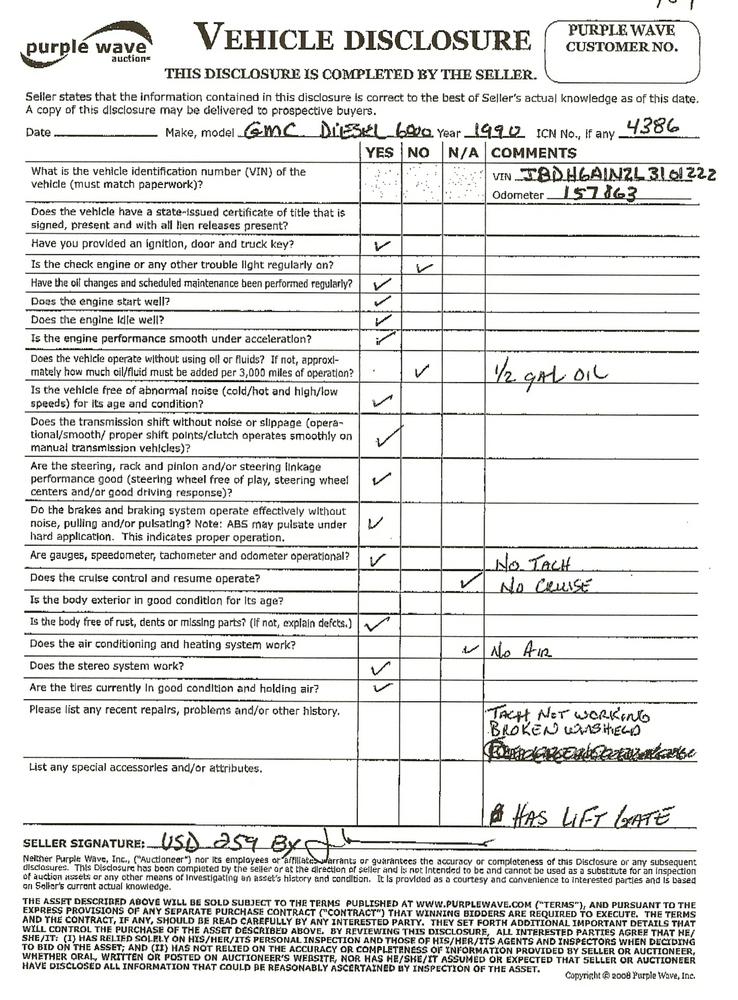 purple wave
auction
VEHICLE DISCLOSURE
PURPLE WAVE
CUSTOMER NO.
THIS DISCLOSURE IS COMPLETED BY THE SELLER.
Seller states that the information contained in this disclosure is correct to the best of Seller's actual knowledge as of this date.
A copy of this disclosure may be delivered to prospective buyers.
Date Make, model GMC DIESEL 6000 Year 1990 ICN No., if any 4386
YES NO N/A COMMENTS
What is the vehicle identification number (VIN) of the
vehicle (must match paperwork)?
VIN
Odometer 157863
Does the vehicle have a state-issued certificate of title that is
signed, present and with all lien releases present?
Have you provided an ignition, door and truck key? ✓
Is the check engine or any other trouble light regularly on? ✓
Have the oil changes and scheduled maintenance been performed regularly? ✓
Does the engine start well? ✓
Does the engine idle well? ✓
Is the engine performance smooth under acceleration? ✓
Does the vehicle operate without using oil or fluids? If not, approxi-
mately how much oil/fluid must be added per 3,000 miles of operation? ✓ 1/2 GAL OIL
Is the vehicle free of abnormal noise (cold/hot and high/low
speeds) for its age and condition? ✓
Does the transmission shift without noise or slippage (opera-
tional/smooth/ proper shift points/clutch operates smoothly on
manual transmission vehicles)? ✓
Are the steering, rack and pinion and/or steering linkage
performance good (steering wheel free of play, steering wheel
centers and/or good driving response)? ✓
Do the brakes and braking system operate effectively without
noise, pulling and/or pulsating? Note: ABS may pulsate under
hard application. This indicates proper operation. ✓
Are gauges, speedometer, tachometer and odometer operational? ✓ No TACH
Does the cruise control and resume operate? ✓ No CRUISE
Is the body exterior in good condition for its age?
Is the body free of rust, dents or missing parts? (If not, explain defcts.) ✓
Does the air conditioning and heating system work? ✓ No AIR
Does the stereo system work? ✓
Are the tires currently in good condition and holding air? ✓
Please list any recent repairs, problems and/or other history.
TACH NOT WORKING
BROKEN WINSHIELD
List any special accessories and/or attributes.
HAS LIFT GATE
SELLER SIGNATURE: USD 259 By
Neither Purple Wave, Inc., ("Auctioneer") nor its employees or affiliates warrants or guarantees the accuracy or completeness of this Disclosure or any subsequent
disclosures. This Disclosure has been completed by the seller or at the direction of seller and is not intended to be and cannot be used as a substitute for an inspection
of auction assets or any other means of investigating an asset's history and condition. It is provided as a courtesy and convenience to interested parties and is based
on Seller's current actual knowledge.
THE ASSET DESCRIBED ABOVE WILL BE SOLD SUBJECT TO THE TERMS PUBLISHED AT WWW.PURPLEWAVE.COM ("TERMS"), AND PURSUANT TO THE
EXPRESS PROVISIONS OF ANY SEPARATE PURCHASE CONTRACT ("CONTRACT") THAT WINNING BIDDERS ARE REQUIRED TO EXECUTE. THE TERMS
AND THE CONTRACT, IF ANY, SHOULD BE READ CAREFULLY BY ANY INTERESTED PARTY. THEY SET FORTH ADDITIONAL IMPORTANT DETAILS THAT
WILL CONTROL THE PURCHASE OF THE ASSET DESCRIBED ABOVE. BY REVIEWING THIS DISCLOSURE, ALL INTERESTED PARTIES AGREE THAT HE/
SHE/IT: (I) HAS RELIED SOLELY ON HIS/HER/ITS PERSONAL INSPECTION AND THOSE OF HIS/HER/ITS AGENTS AND INSPECTORS WHEN DECIDING
TO BID ON THE ASSET; AND (II) HAS NOT RELIED ON THE ACCURACY OR COMPLETENESS OF INFORMATION PROVIDED BY SELLER OR AUCTIONEER,
WHETHER ORAL, WRITTEN OR POSTED ON AUCTIONEER'S WEBSITE, NOR HAS HE/SHE/IT ASSUMED OR EXPECTED THAT SELLER OR AUCTIONEER
HAVE DISCLOSED ALL INFORMATION THAT COULD BE REASONABLY ASCERTAINED BY INSPECTION OF THE ASSET.
Copyright © 2008 Purple Wave, Inc.